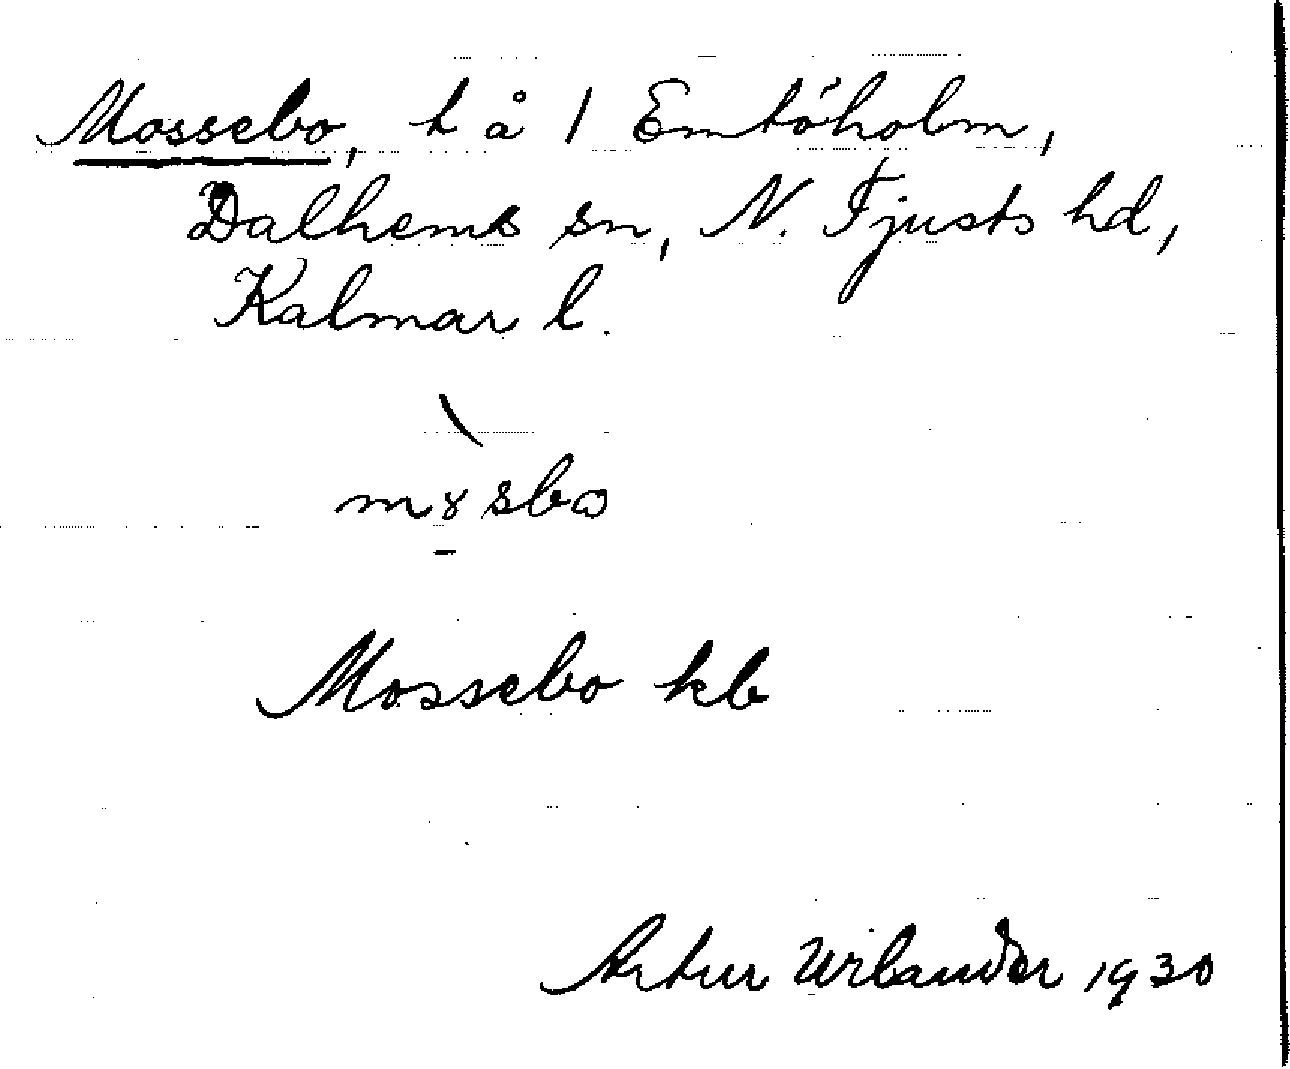 Mossebo, t å 1 Emtöholm,
Dalhems sn, N. Tjusts hd,
Kalmar l.
m8sbo
Mossebo kb
Artur Wilander 1930